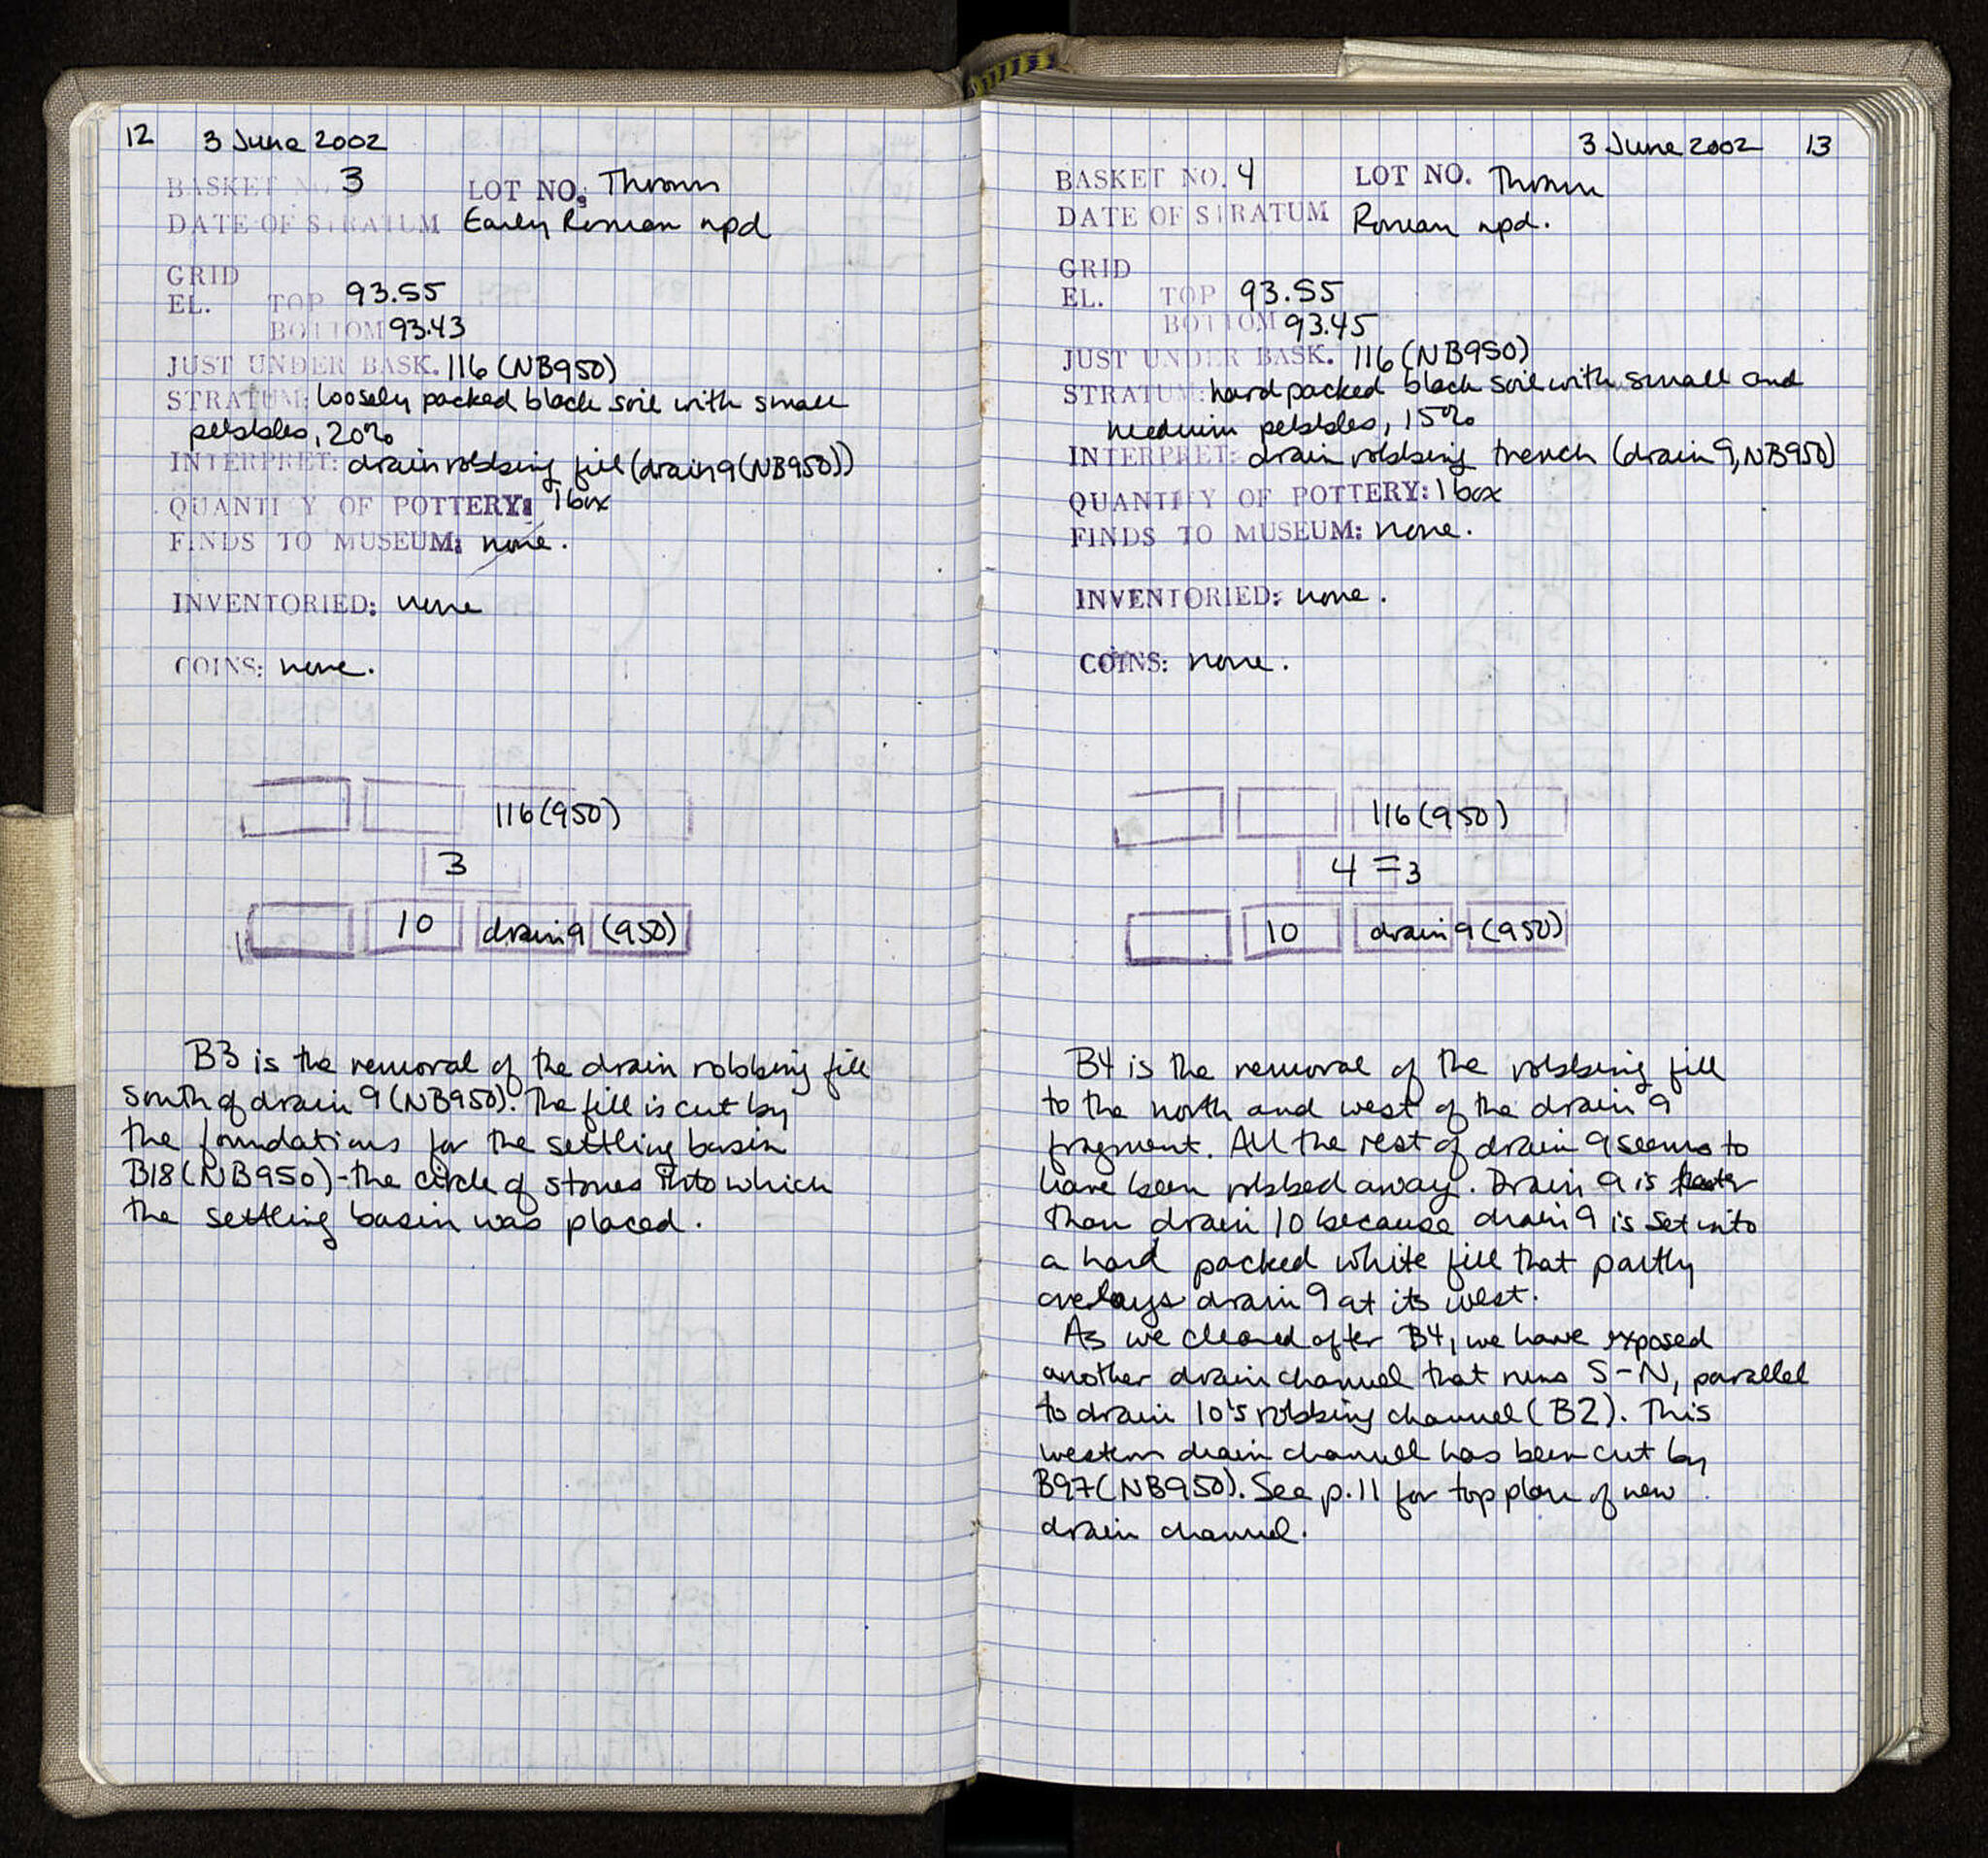 12 3 June 2002
BASKET NO. 3 LOT NO. Thrown
DATE OF STRATUM Early Roman npd
GRID
EL. TOP 93.55
BOTTOM 93.43
JUST UNDER BASK. 116 (NB950)
STRATUM: loosely packed black soil with small
pebbles, 20%
INTERPRET: drain robbing fill (drain 9 (NB950))
QUANTITY OF POTTERY: 1 box
FINDS TO MUSEUM: none.
INVENTORIED: none
COINS: none.
116 (950)
3
10 drain 9 (950)
B3 is the removal of the drain robbing fill
south of drain 9 (NB950). The fill is cut by
the foundations for the settling basin
B18 (NB950) - the circle of stones into which
the settling basin was placed.
3 June 2002 13
BASKET NO. 4 LOT NO. Thrown
DATE OF STRATUM Roman npd.
GRID
EL. TOP 93.55
BOTTOM 93.45
JUST UNDER BASK. 116 (NB950)
STRATUM: hard packed black soil with small and
medium pebbles, 15%
INTERPRET: drain robbing trench (drain 9, NB950)
QUANTITY OF POTTERY: 1 box
FINDS TO MUSEUM: none.
INVENTORIED: none.
COINS: none.
116 (950)
4 = 3
10 drain 9 (950)
B4 is the removal of the robbing fill
to the north and west of the drain 9
fragment. All the rest of drain 9 seems to
have been robbed away. Drain 9 is
than drain 10 because drain 9 is set into
a hard packed white fill that partly
overlays drain 9 at its west.
As we cleaned after B4, we have exposed
another drain channel that runs S-N, parallel
to drain 10's robbing channel (B2). This
western drain channel has been cut by
B97 (NB950). See p. 11 for top plan of new
drain channel.